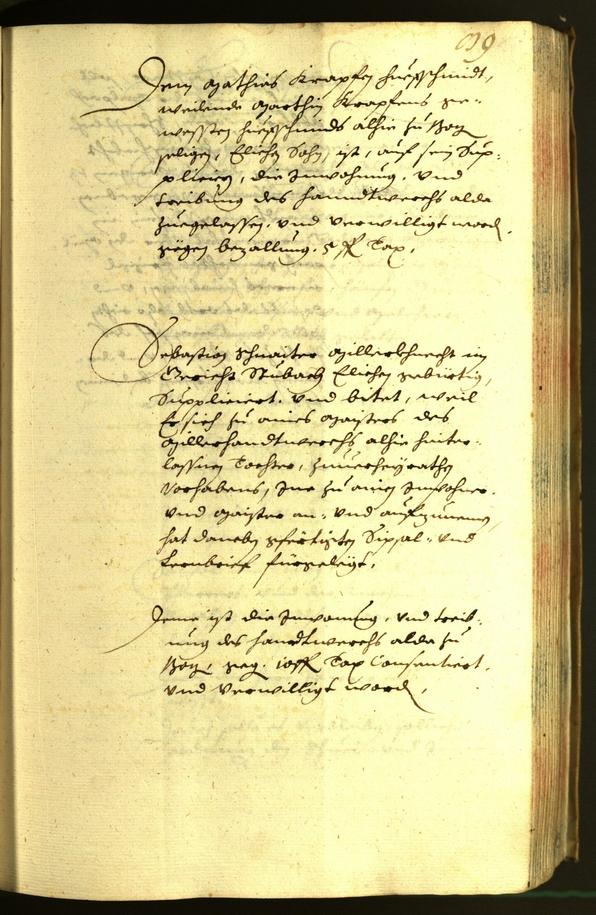 Dem Mathias Krapfen Huefschmidt,
weilende Marthin Krapfens ge-
westen Huefschmids alhie zu Boz:
seligen, Elichen Sohn, ist, auf sein Sup-
plicirn, die Inwohnung, und
treibung des handtwerchs alda
zuegelassen, und verwilligt word.
gegen bezallung. 5 fl Tax.
Sebastian Schnaiter Millerkhnecht im
Gericht Stubach Elichen gebürtig,
Supplicirt. und bitet, weil
Er sich zu aines Maisters des
Millerhandtwerchs alhie hinter-
lassnen Tochter, zuuerheyrathen
vorhabens, Ine zu ainen Inwohner.
und Maister an- und aufzunemen,
hat daneben gefertigten Gepurt- und
Lernbrief fürgelegt.
Deme ist die Inwonung, und treib-
ung des handtwerchs alda zu
Boz, geg. 10 fl Tax Consentiert.
und verwilligt word.